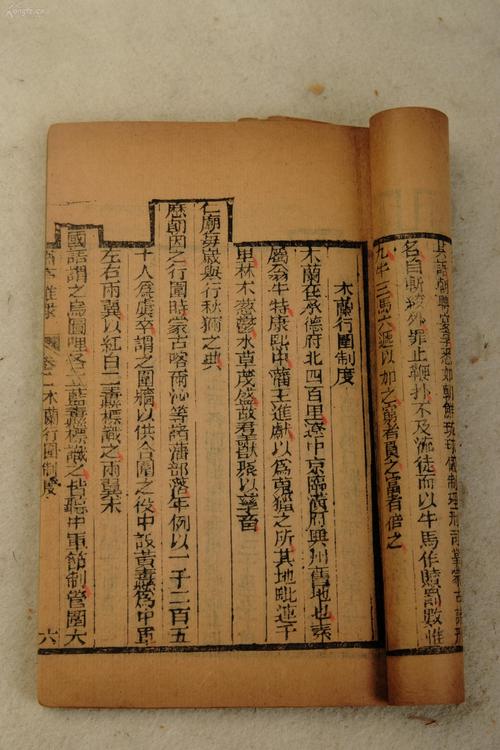 悉如朝鮮琉球儀制理刑
名自斬絞外罪止鞭扑不及流徒而以牛馬作贖罰數惟
九牛三馬六遞以加之窮者貟之富者倍之
木蘭行圍制度
木蘭在承德府北四百里遼中京臨潢府興州舊地也素
屬翁牛特康熙中藩王進獻以爲蒐獵之所其地毗連千
里林木葱鬱水草茂盛故羣獸聚以孳畜
仁廟每歲與行秋獮之典
歷朝因之行圍時蒙古喀爾沁等諸藩部落年例以一千二百五
十人爲虞卒謂之圍牆以供合圍之役中設黃纛爲中軍
左右兩翼以紅白二纛標識之兩翼末
國語謂之烏圖哩各立藍纛標識之皆聽中軍節制管圍大
嘯亭雜錄 卷二 木蘭行圍制度 六